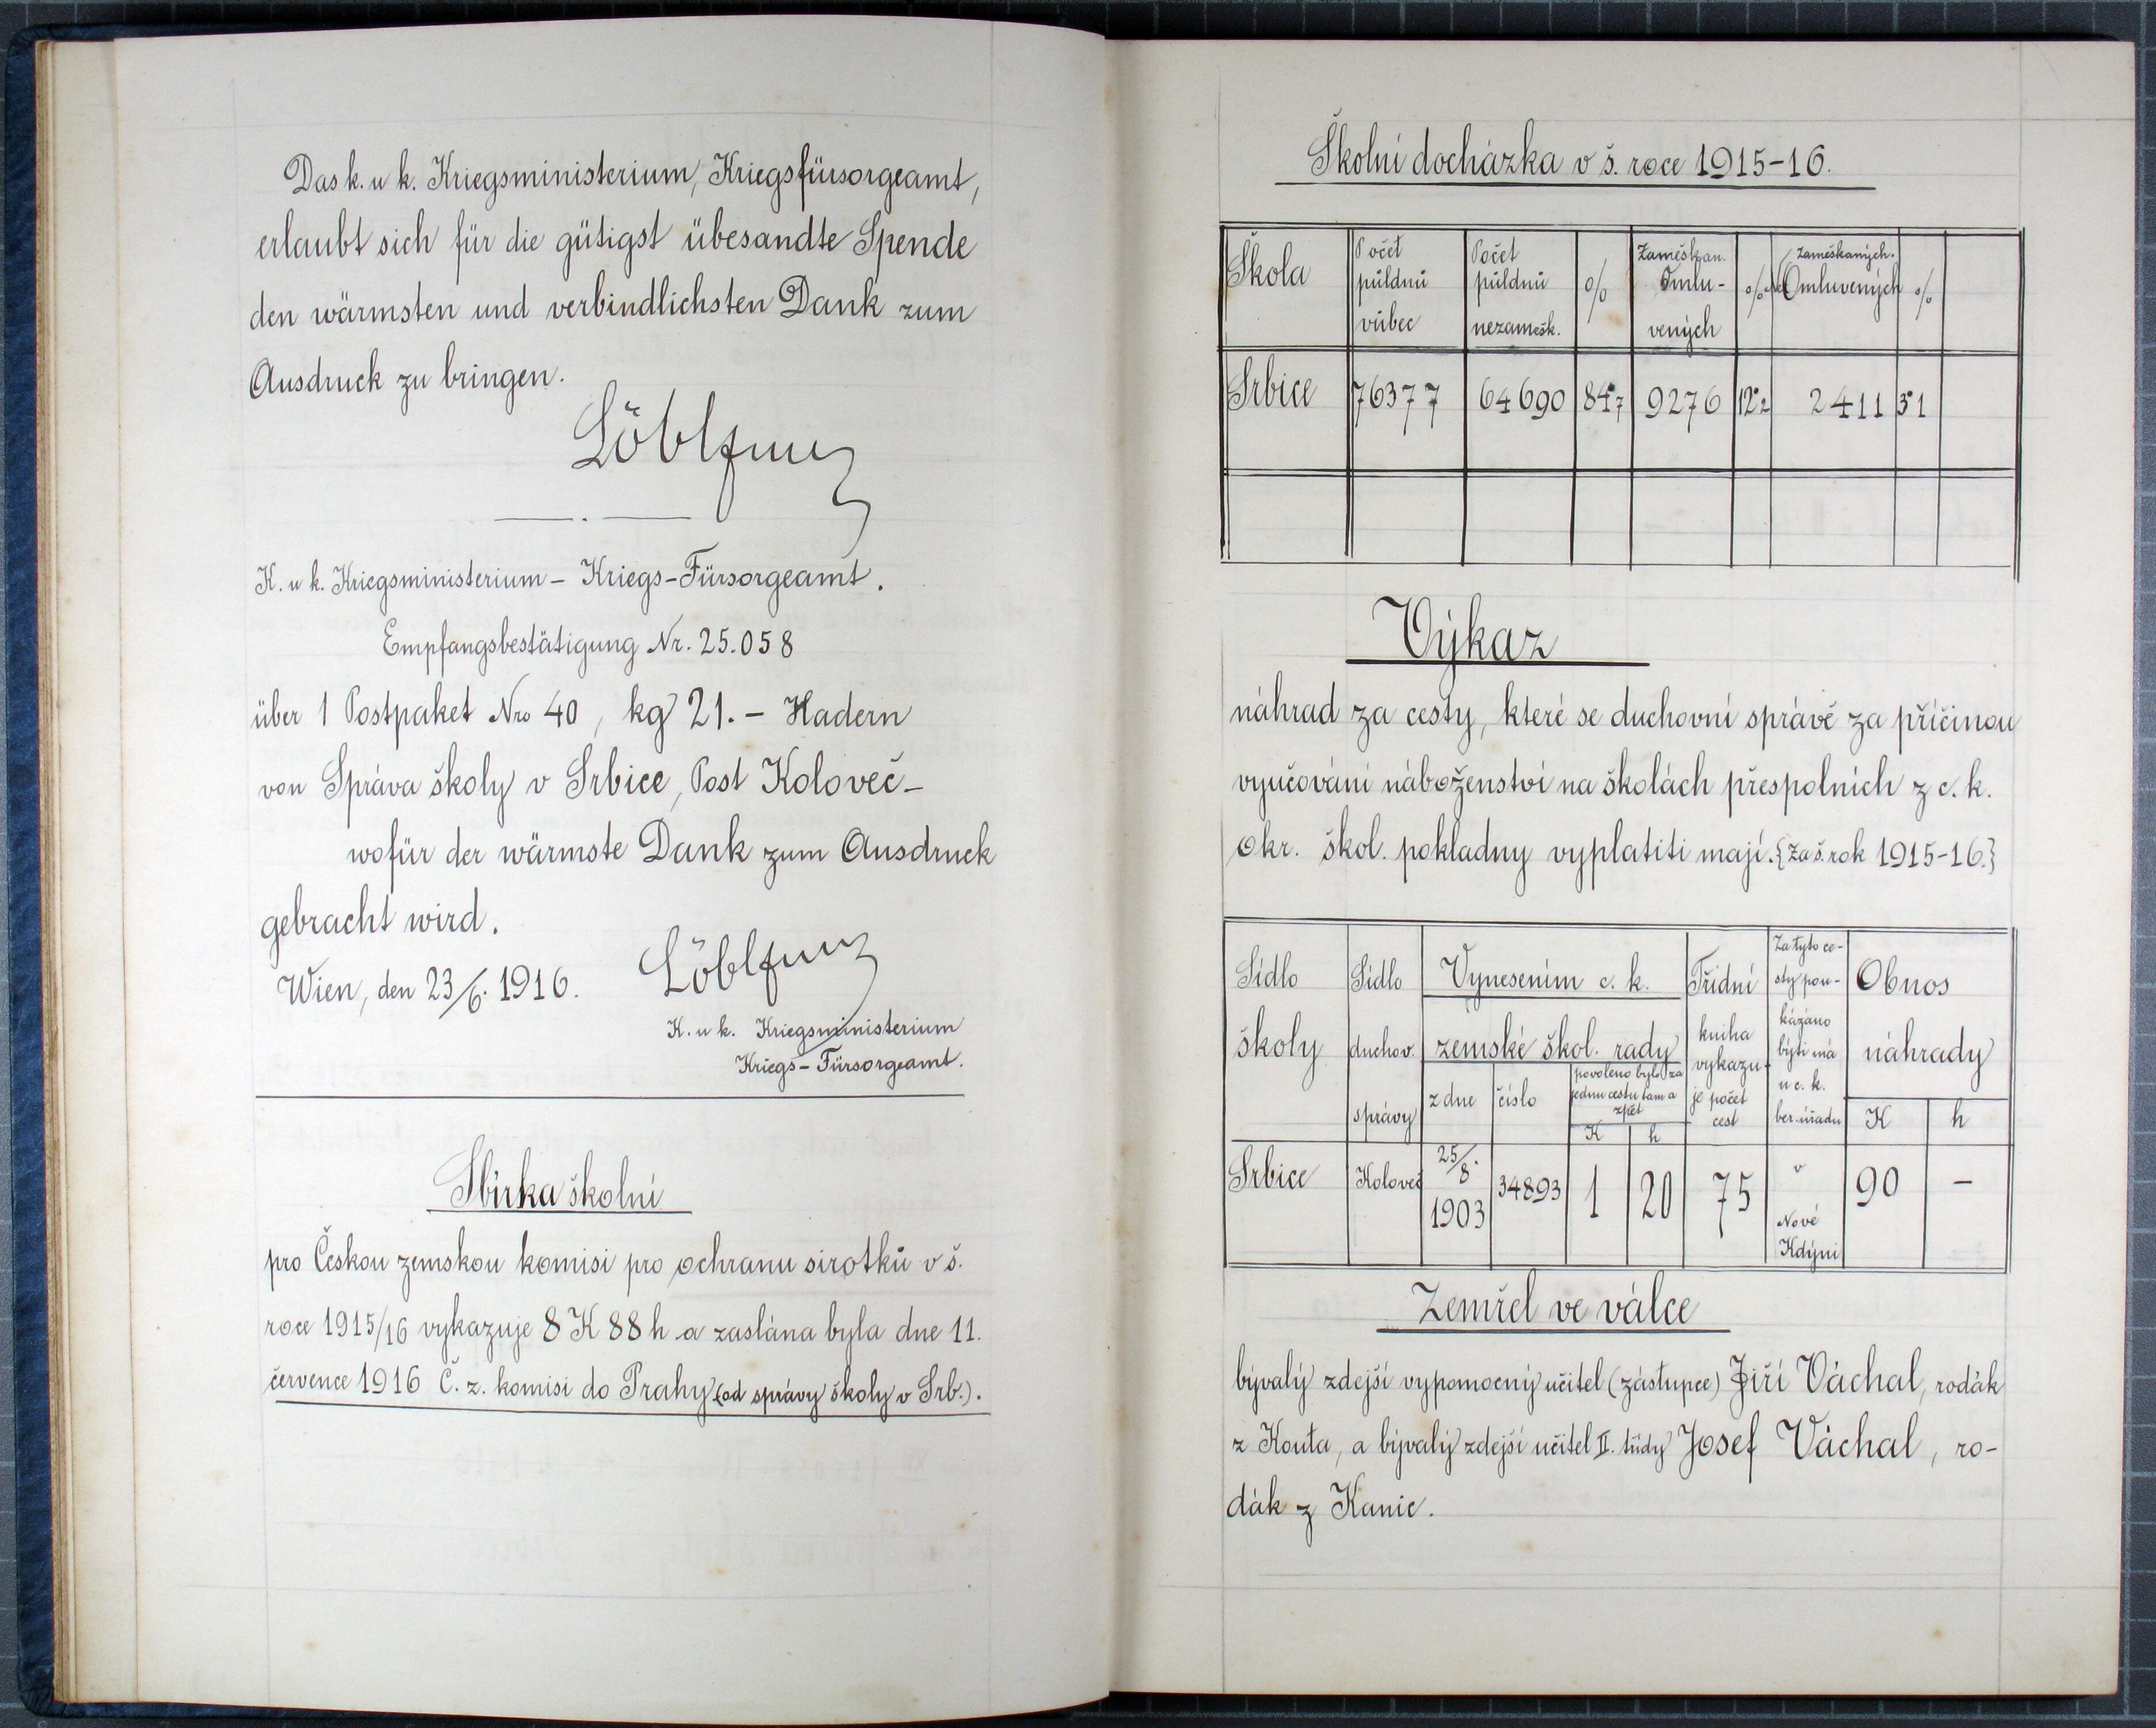 Das k. u k. Kriegsministerium, Kriegsfürsorgeamt,
erlaubt sich für die gütigst übesandte Spende
den wärmsten und verbindlichsten Dank zum
Ausdruck zu bringen.
K. u k. Kriegsministerium – Kriegs-Fürsorgeamt.
Empfangsbestätigung Nr. 25.058
über 1 Postpaket Nro 40, kg 21. – Hadern
von Správa školy v Srbice, Post Koloveč –
wofür der wärmste Dank zum Ausdruck
gebracht wird.
Wien, den 23/6. 1916.
K. u k. Kriegsministerium
Kriegs-Fürsorgeamt.
Sbírka školní
pro Českou zemskou komisi pro ochranu sirotků v š.
roce 1915/16 vykazuje 8 K 88 h a zaslána byla dne 11.
července 1916 Č. z. komisi do Prahy (od správy školy v Srb.).
Školní docházka v š. roce 1915-16.
Škola | Počet půldnů vůbec | Počet půldnů nezamešk. | % | Zameškan. Omluvených | % | Zameškaných. NeOmluvených | %
Srbice | 76377 | 64690 | 84.7 | 9276 | 12.2 | 2411 | 3.1
Výkaz
náhrad za cesty, které se duchovní správě za příčinou
vyučování náboženství na školách přespolních z c. k.
okr. škol. pokladny vyplatiti mají. {za š. rok 1915-16.}
Sídlo školy | Sídlo duchov. správy | Vynesením c. k. zemské škol. rady | z dne | číslo | povoleno bylo za jednu cestu tam a zpět | K | h | Třídní kniha vykazuje počet cest | Za tyto cesty poukázáno býti má u c. k. ber. úřadu | Obnos náhrady | K | h
Srbice | Koloveč | 25/8. 1903 | 34893 | 1 | 20 | 75 | v Nové Kdýni | 90 | –
Zemřel ve válce
bývalý zdejší vypomocný učitel (zástupce) Jiří Váchal, rodák
z Kouta, a bývalý zdejší učitel II. třídy Josef Váchal, ro-
dák z Kanic.